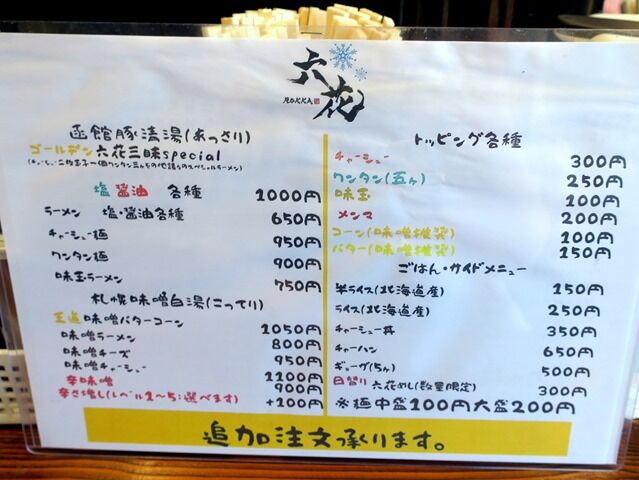 六花
ROKKA
函館豚清湯(あっさり)
ゴールデン六花三昧special
塩 醤油 各種 1000円
ラーメン 塩・醤油各種 650円
チャーシュー麺 950円
ワンタン麺 900円
味玉ラーメン 750円
札幌味噌白湯(こってり)
王道味噌バターコーン 1050円
味噌ラーメン 800円
味噌チーズ 950円
味噌チャーシュー 1100円
辛味噌 900円
辛さ増し(レベル1〜5:選べます) +100円
トッピング各種
チャーシュー 300円
ワンタン(五ヶ) 250円
味玉 100円
メンマ 200円
コーン(味噌推奨) 100円
バター(味噌推奨) 150円
ごはん・サイドメニュー
半ライス(北海道産) 150円
ライス(北海道産) 250円
チャーシュー丼 350円
チャーハン 650円
ギョーザ(5ヶ) 500円
日替り 六花めし(数量限定) 300円
※麺中盛100円大盛200円
追加注文承ります。